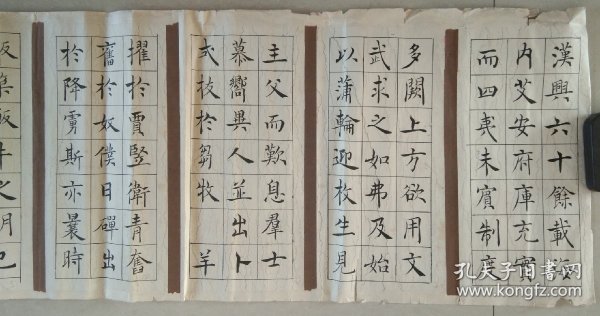 漢興六十餘載海
內艾安府庫充實
而四夷未賓制度
多闕上方欲用文
武求之如弗及始
以蒲輪迎枚生見
主父而歎息羣士
慕嚮異人並出卜
式拔於芻牧 羊
擢於賈豎衛青奮
奮於奴僕日磾出
於降虜斯亦曩時
牛之已
孔夫子旧书网
www.kongfz.com